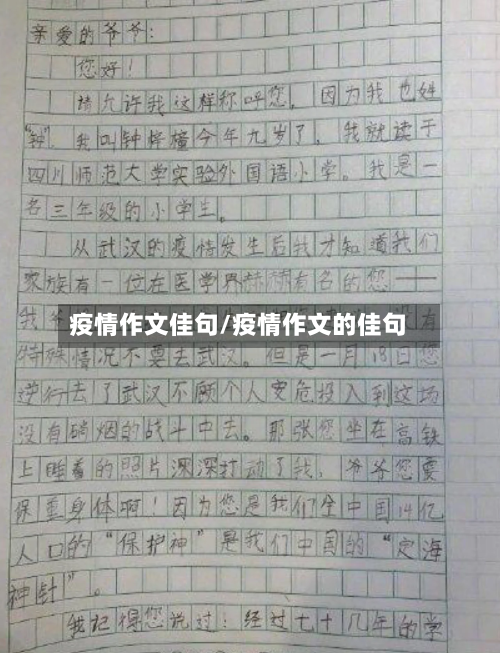 亲爱的爷爷：
您好！
请允许我这样称呼您，因为我也姓
“钟”，我叫钟梓橦今年九岁了，我就读于
四川师范大学实验外国语小学。我是一
名三年级的小学生。
从武汉的疫情发生后我才知道我们
家族有一位在医学界赫赫有名的您——
疫情作文佳句/疫情作文的佳句
特殊情况不要去武汉。但是一月18日您
逆行去了武汉不顾个人安危投入到这场
没有硝烟的战斗中去。那张您坐在高铁
上睡着的照片深深打动了我，爷爷您要
保重身体啊！因为您是我们全中国14亿
人口的“保护神”是我们中国的“定海
神针”。
我记得您说过：经过七十几年的学